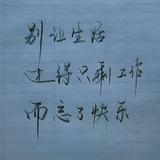 别让生活
过得只剩工作
而忘了快乐